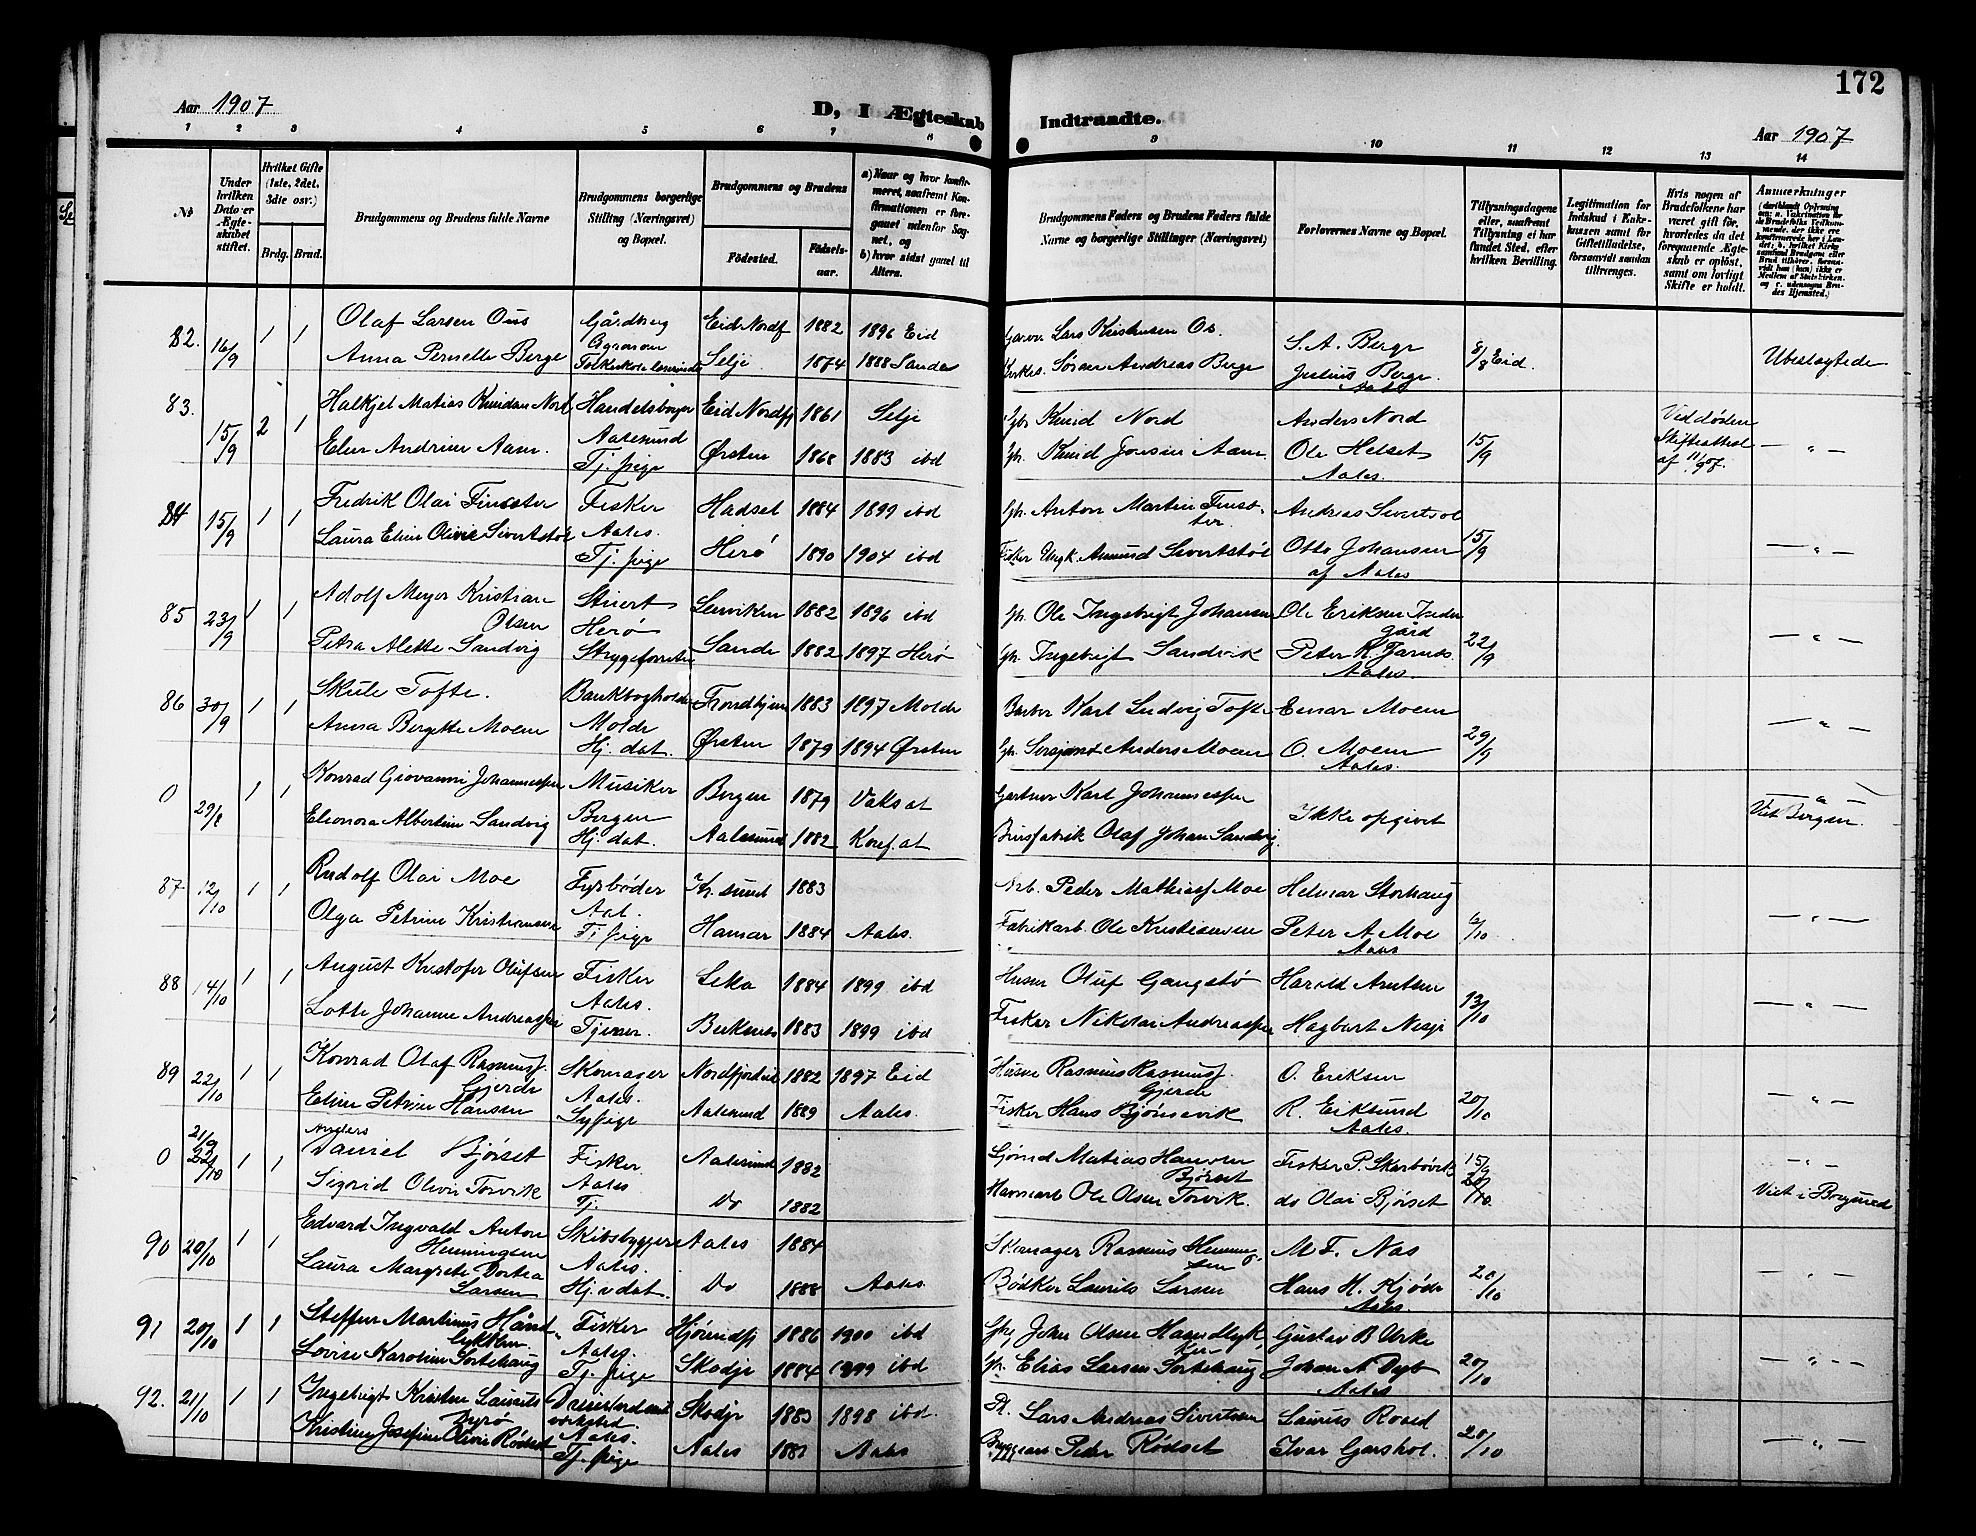 172
Aar 1907
D, I Ægteskab Indtraadte.
Aar 1907
1 2 3 4 5 6 7 8 9 10 11 12 13 14
No
Under hvilken Dato er Ægteskabet stiftet.
Hvilket Gifte (1ste, 2det, 3die osv.)
Brdg. Brud.
Brudgommens og Brudens fulde Navne
Brudgommens borgerlige Stilling (Næringsvei) og Bopæl.
Brudgommens og Brudens
Födested. Födsels-aar.
a) Naar og hvor konfirmeret, saafremt Konfirmationen er foregaaet udenfor Sognet, og
b) hvor sidst gaaet til Alters.
Brudgommens Faders og Brudens Faders fulde Navne og borgerlige Stillinger (Næringsvei)
Forlovernes Navne og Bopæl.
Tillysningsdagene eller, saafremt Tillysning ei har fundet Sted, efter hvilken Bevilling.
Legitimation for Indskud i Enkekassen samt for Giftetilladelse, forsaavidt saadan tiltrænges.
Hvis nogen af Brudefolkene har været gift för, hvorledes da det foregaaende Ægteskab er oplöst, samt om lovligt Skifte er holdt.
Anmærkninger
82. 16/9 1 1 Olaf Larsen Ous Gårdbrug Eid Nordf 1882 1896 Eid Lars Kristensen Os. S. A. Berge 8/8 Eid. Ubeslegtede
Anna Pernelle Berge Agronom Folkeskolelærerinde Selje 1874 1888 Sande Kirkes. Søren Andreas Berge Julius Berge. Aales
83. 15/9 2 1 Halkjel Matias Knudsen Nord Handelsborger Eid Nordfj 1861 Selje Knud Nord Anders Nord Ved døden Skifteattest af 11/9 07.
Elen Andrine Aam. Aalesund Tj. pige Ørsten 1868 1883 ibd Knud Jonsen Aam Ole Helset Aales. 15/9 — " —
84 15/9 1 1 Fredrik Olai Finseter Fisker Hadsel 1884 1899 ibd Anton Martin Finseter Andreas Sivertsøl
Laura Eline Olivie Sivertstøl Aales. Tj. pige Herø 1890 1904 ibd Fisker Amund Sivertstøl Otto Johansen af Aales 15/9 — " —
85 23/9 1 1 Adolf Meyer Kristian Olsen Stuert Lenviken 1882 1896 ibd Ole Ingebrigt Johansen Ole Eriksen Indergård
Petra Alette Sandvig Herø Strygeforretn Sande 1882 1897 Herø Ingebrigt Sandvik Peter K. Aales. 22/9 — " —
86 30/9 1 1 Skule Tofte. Bankbogholder Trondhjem 1883 1897 Molde Barber Karl Ludvig Tofte Einar Moen
Anna Bergitte Moen Molde Hj. dat. Ørsten 1879 1894 Ørsten Sersjant Anders Moen O. Moen Aales. 29/9 — " —
0 29/8 1 1 Konrad Giovanni Johannessen Musiker Bergen 1879 Vaks at Gartner Karl Johannessen Ikke opgivet — " —
Eleonora Albertine Sandvig Bergen Hj. dat. Aalesund 1882 Konf. at Brusfabrik Olaf Johan Sandvig. Viet Bergen.
87 12/10 1 1 Rudolf Olai Moe Fyrbøder Kr. sund 1883 Arb. Peder Mathias Moe Helmar Storhaug
Olga Petrine Kristiansen Aal. Tj. pige Hamar 1884 Aales. Fabrikarb. Ole Kristiansen Peter A Moe Aales 6/10 — " —
88 14/10 1 1 August Kristofer Olufsen Fisker Leka 1884 1899 ibd Husm Oluf Gangstø Harold Arntsen
Lotte Johanne Andreassen Aales. Tjener. 1883 1899 ibd Fisker Nikolai Andreassen Hagbart Nesje 13/10 — " —
89 22/10 1 1 Konrad Olaf Rasmuss. Gjerde Skomager Nordfjordeid 1882 1897 Eid Husm Rasmus Rasmuss. Gjerde O. Eriksen
Eline Petrine Hansen Aales. Sypige Aalesund 1889 Aales. Fisker Hans Bjørnevik R. Eiksund Aales. 20/10 — " —
0 21/9 22/10 1 1 Anders Daniel Bjørset Fisker Aalesund 1882 Matias Hansen Bjørset Fisker P. Skarbøvik 15/9 — " —
Sigrid Olivie Torvik Aales Tj. Do 1882 Ole Olsen Torvik. do Olai Bjørset 20/10 Viet i Borgund
90 20/10 1 1 Edvard Ingvald Anton Henningsen Skibsbygger Aales 1884 Skomager Rasmus Henningsen M F. Nas
Laura Margrete Dortea Larsen Aales. Hj. v dat. Do 1888 Aales. Bødker Laurits Larsen Hans H. Kjøde Aales 20/10 — " —
91 20/10 1 1 Steffen Martinus Håndlykken Fisker Hjørundfj 1886 1900 ibd John Olsen Haandlykken Gustav B Urke
Lovise Karoline Sortehaug Aales. Tj. pige Skodje 1884 1899 ibd Elias Larsen Sortehaug Johan A Dyb Aales 20/10 — " —
92. 21/10 1 1 Ingebrigt Kristen Laurits Dyrø Skodje 1883 1898 ibd. Lars Andreas Sivertsen Laurits Roald
Kristine Josefine Olivie Rødset Aales. Tj. pige Aales 1881 Aales Byggearb Peter Rødset Ivar Garshol. 20/10 — " —